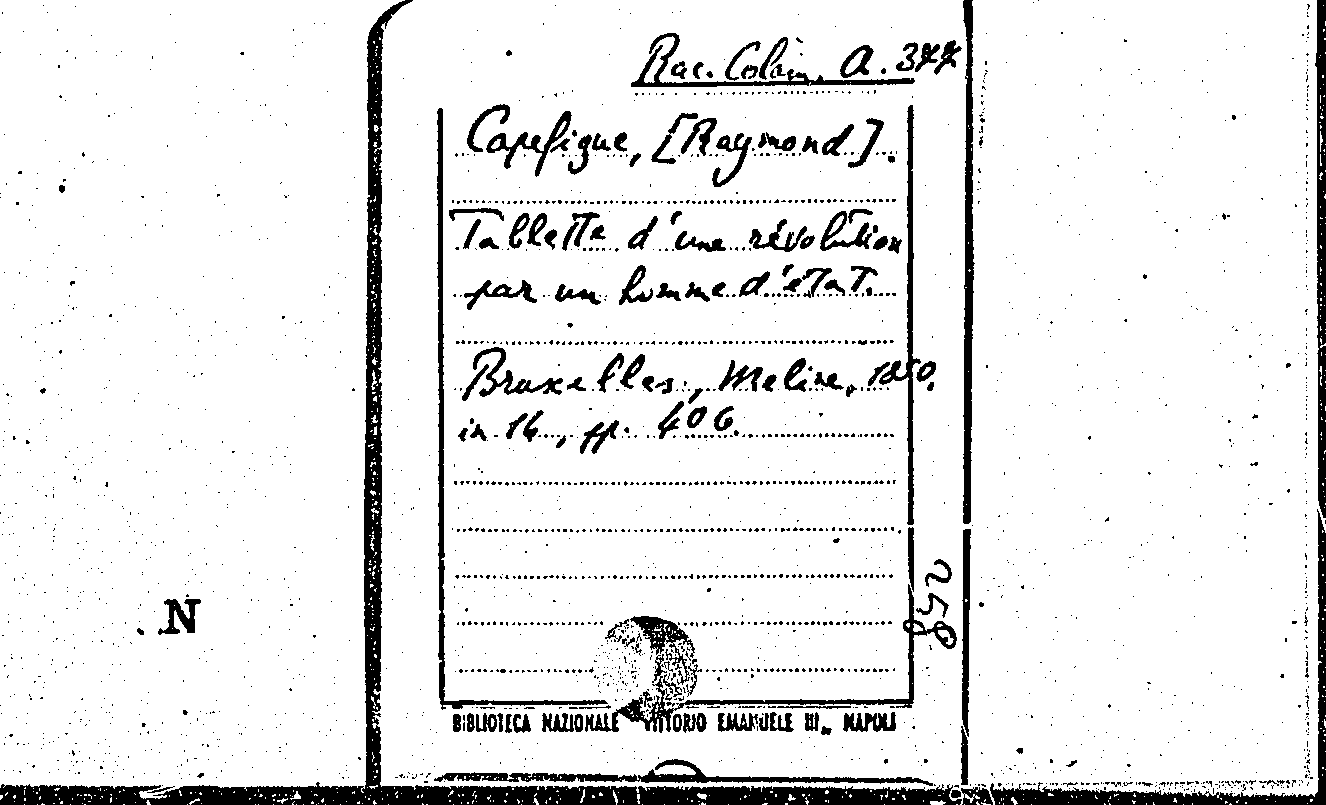 Rac. Colam. A. 377
Capefigue, [Raymond].
Tablette d'une révolution
par un homme d'état.
Bruxelles, Meline, 1850.
in 16, pp. 406.
N
BIBLIOTECA NAZIONALE VITTORIO EMANUELE III„ NAPOLI